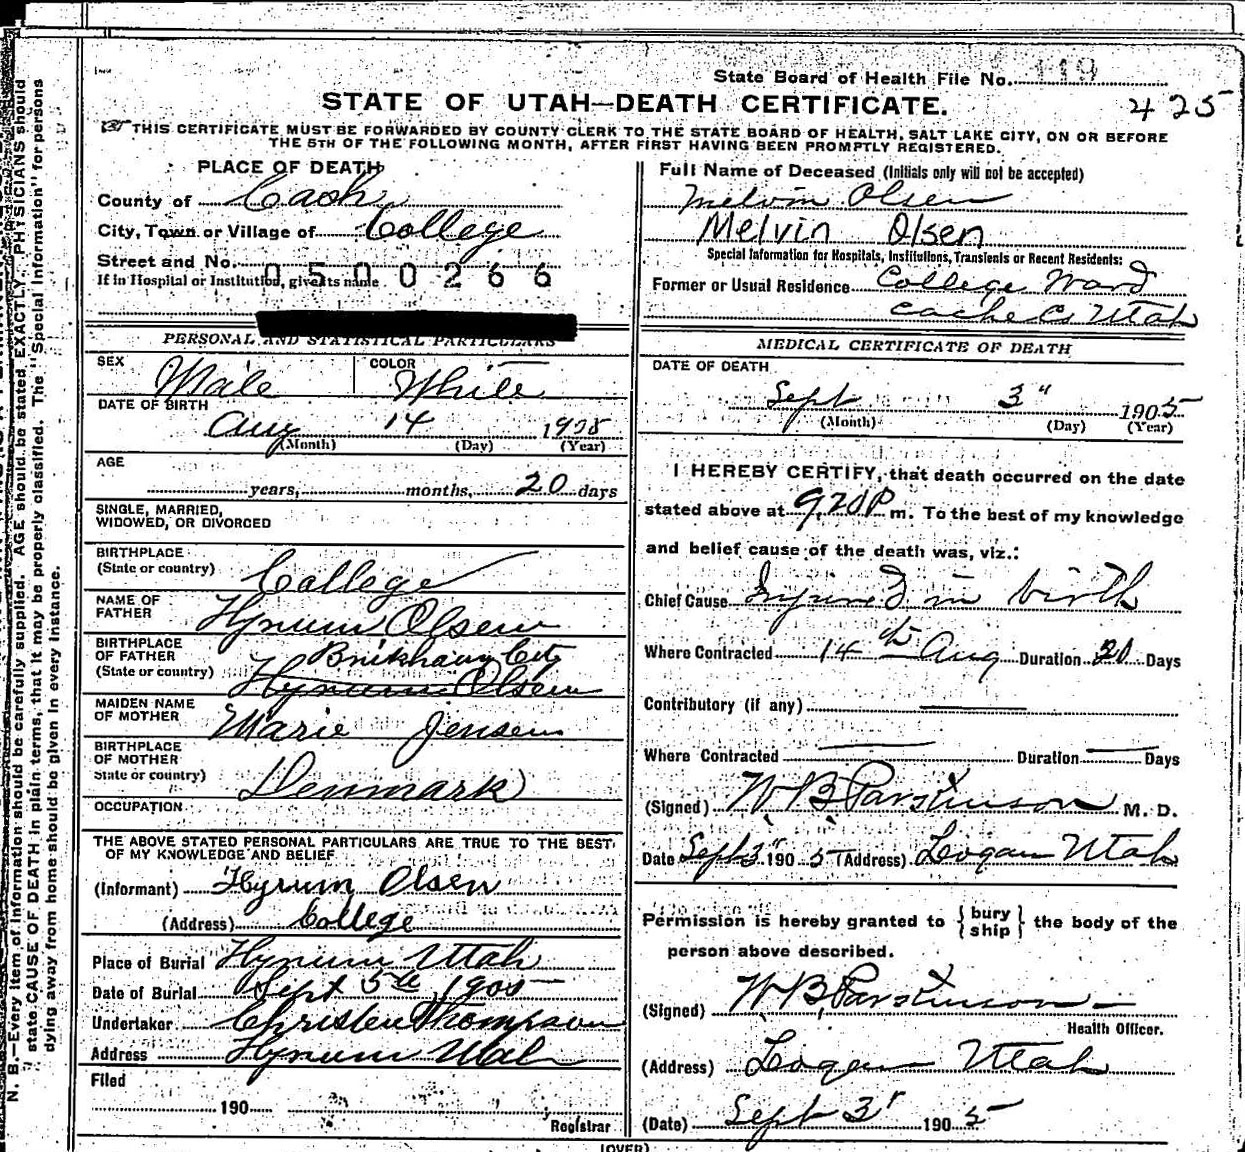 State Board of Health File No. 119
STATE OF UTAH—DEATH CERTIFICATE.
425
THIS CERTIFICATE MUST BE FORWARDED BY COUNTY CLERK TO THE STATE BOARD OF HEALTH, SALT LAKE CITY, ON OR BEFORE
THE 5TH OF THE FOLLOWING MONTH, AFTER FIRST HAVING BEEN PROMPTLY REGISTERED.
PLACE OF DEATH
County of Cach
City, Town or Village of College
Street and No.
If in Hospital or Institution, give its name 0500266
PERSONAL AND STATISTICAL PARTICULARS
SEX Male COLOR White
DATE OF BIRTH
Aug 14 1905
(Month) (Day) (Year)
AGE
years, months, 20 days
SINGLE, MARRIED,
WIDOWED, OR DIVORCED
BIRTHPLACE
(State or country) College
NAME OF
FATHER Hyrum Olsen
BIRTHPLACE
OF FATHER
(State or country) City
Hyrum Olsen
MAIDEN NAME
OF MOTHER Marie Jensen
BIRTHPLACE
OF MOTHER
State or country) Denmark
OCCUPATION
THE ABOVE STATED PERSONAL PARTICULARS ARE TRUE TO THE BEST
OF MY KNOWLEDGE AND BELIEF
(Informant) Hyrum Olsen
(Address) College
Place of Burial Hyrum Utah
Date of Burial Sept 5th 1905
Undertaker Christen Thompson
Address Hyrum Utah
Filed
190
Registrar
(OVER)
Full Name of Deceased (Initials only will not be accepted)
Melvin Olsen
Melvin Olsen
Special Information for Hospitals, Institutions, Transients or Recent Residents:
Former or Usual Residence College Ward
Cache Co Utah
MEDICAL CERTIFICATE OF DEATH
DATE OF DEATH
Sept 3" 1905
(Month) (Day) (Year)
I HEREBY CERTIFY, that death occurred on the date
stated above at 9.20 P m. To the best of my knowledge
and belief cause of the death was, viz.:
Chief Cause Injured in birth
Where Contracted 14th Aug Duration 20 Days
Contributory (if any) —
Where Contracted — Duration — Days
(Signed) W B Parkinson M. D.
Date Sept 3" 1905 (Address) Logan Utah
Permission is hereby granted to {bury ship} the body of the
person above described.
(Signed) W B Parkinson
Health Officer.
(Address) Logan Utah
(Date) Sept 3" 1905
N. B.—Every item of information should be carefully supplied. AGE should be stated EXACTLY. PHYSICIANS should
state CAUSE OF DEATH in plain terms, that it may be properly classified. The "Special Information" for persons
dying away from home should be given in every instance.